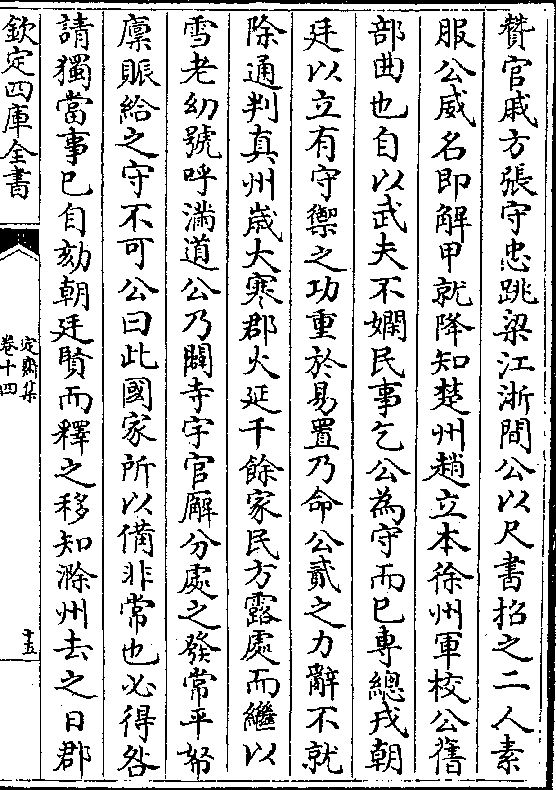 贊官戚方張守忠跳梁江浙間公以尺書招之二人素
服公威名即解甲就降知楚州趙立本徐州軍校公舊
部曲也自以武夫不嫻民事乞公為守而已專總戎朝
廷以立有守禦之功重於易置乃命公貳之力辭不就
除通判真州歲大寒郡火延千餘家民方露處而繼以
雪老幼號呼滿道公乃闢寺宇官廨分處之發常平帑
廩賑給之守不可公曰此國家所以備非常也必得咎
請獨當事已自劾朝廷賢而釋之移知滁州去之日郡
欽定四庫全書
定齋集
卷十四
十五